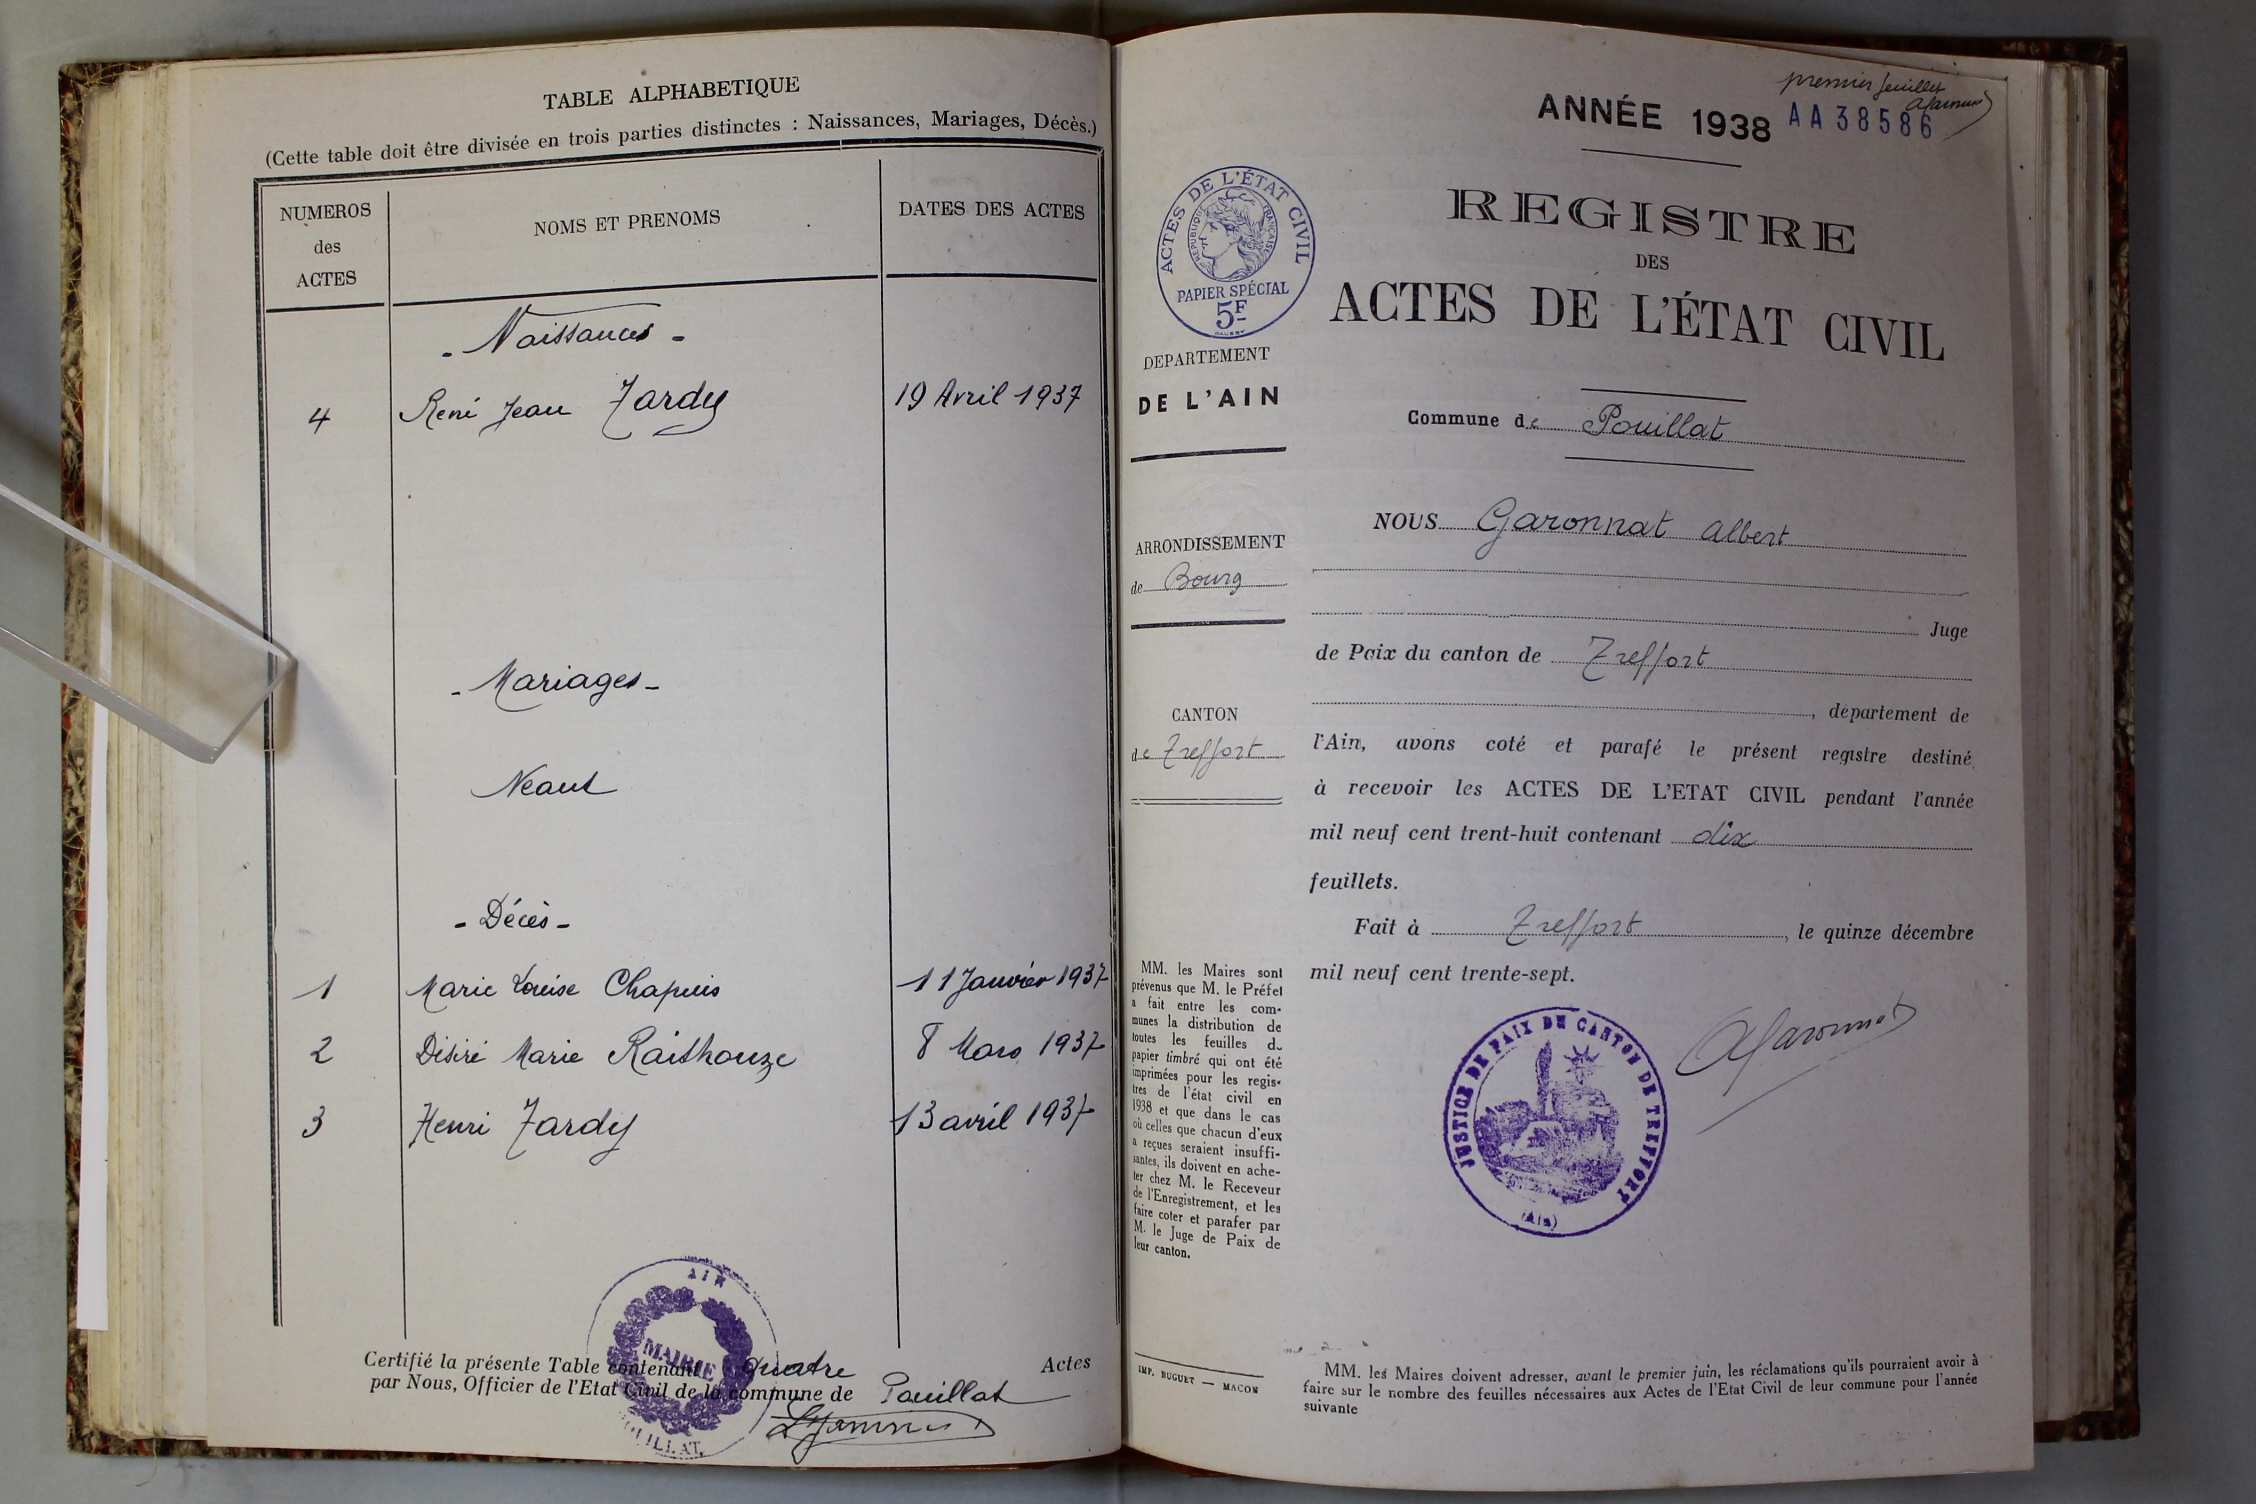 TABLE ALPHABETIQUE
(Cette table doit être divisée en trois parties distinctes : Naissances, Mariages, Décès.)
NUMEROS
des
ACTES
NOMS ET PRENOMS
DATES DES ACTES
- Naissances -
4 René Jean Tardy 19 Avril 1937
- Mariages -
Neant
- Décès -
1 Marie Louise Chapuis 11 Janvier 1937
2 Désiré Marie Raithouze 8 Mars 1937
3 Henri Tardy 13 avril 1937
AIN
MAIRIE
Certifié la présente Table contenant quatre Actes
par Nous, Officier de l'Etat Civil de la commune de Pouillat
premier feuillet
ANNÉE 1938 AA38586
ACTES DE L'ÉTAT CIVIL
RÉPUBLIQUE FRANÇAISE
PAPIER SPÉCIAL
5F
REGISTRE
DES
ACTES DE L'ÉTAT CIVIL
DEPARTEMENT
DE L'AIN
Commune de Pouillat
ARRONDISSEMENT
de Bourg
CANTON
de Treffort
NOUS Garonnat Albert
Juge
de Paix du canton de Treffort
, departement de
l'Ain, avons coté et parafé le présent registre destiné
à recevoir les ACTES DE L'ETAT CIVIL pendant l'année
mil neuf cent trent-huit contenant dix
feuillets.
Fait à Treffort, le quinze décembre
mil neuf cent trente-sept.
MM. les Maires sont
prévenus que M. le Préfet
a fait entre les com-
munes la distribution de
toutes les feuilles du
papier timbré qui ont été
imprimées pour les regis-
tres de l'état civil en
1938 et que dans le cas
où celles que chacun d'eux
a reçues seraient insuffi-
santes, ils doivent en ache-
ter chez M. le Receveur
de l'Enregistrement, et les
faire coter et parafer par
M. le Juge de Paix de
leur canton.
JUSTICE DE PAIX DU CANTON DE TREFFORT
(AIN)
IMP. BUGUET — MACON
MM. les Maires doivent adresser, avant le premier juin, les réclamations qu'ils pourraient avoir à
faire sur le nombre des feuilles nécessaires aux Actes de l'Etat Civil de leur commune pour l'année
suivante